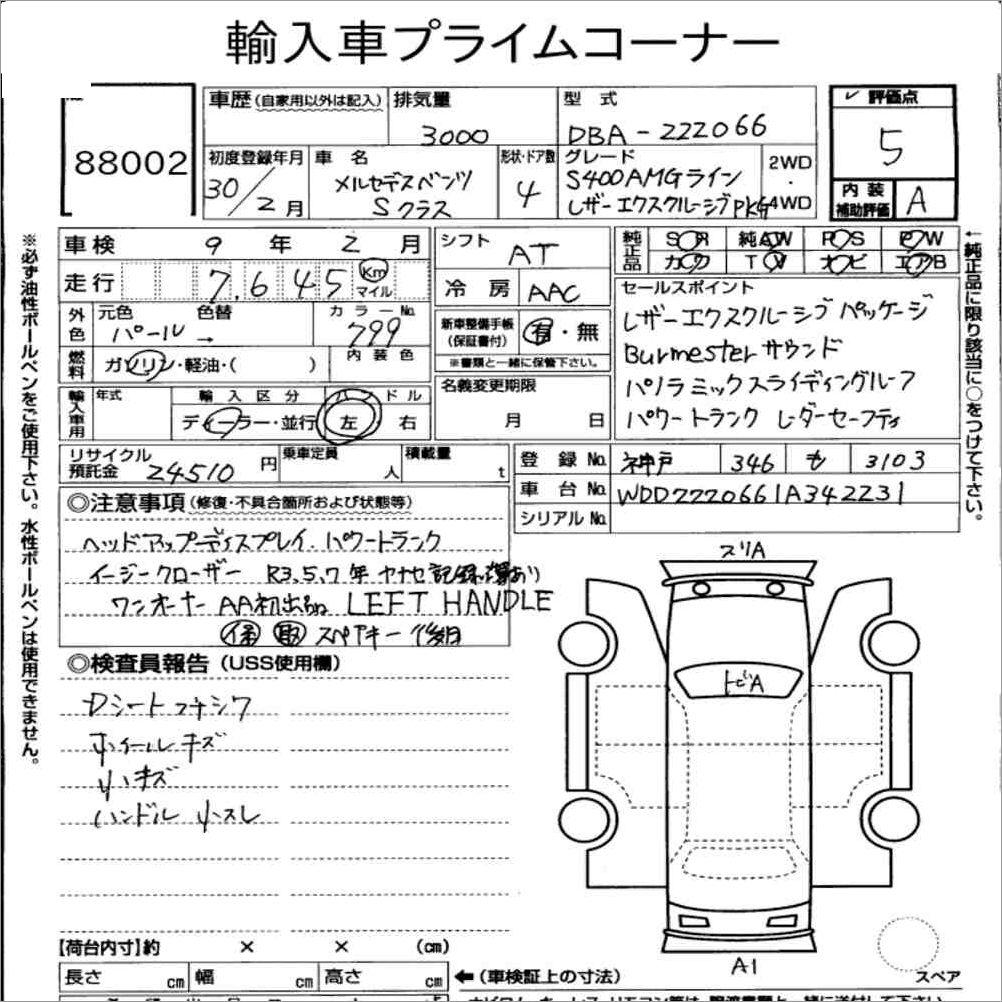 輸入車プライムコーナー
88002
車歴(自家用以外は記入)
排気量
3000
型式
DBA-222066
評価点
5
初度登録年月
30/2月
車名
メルセデスベンツ
Sクラス
形状・ドア数
4
グレード
S400AMGライン
レザーエクスクルーシブPKG
2WD
・
4WD
内装
補助評価
A
※必ず油性ボールペンをご使用下さい。水性ボールペンは使用できません。
車検 9年2月
走行 7,645 Km
マイル
シフト AT
冷房 AAC
純正品
SR 純AW PS PW
カワ TV ナビ エアB
←純正品に限り該当に○をつけて下さい。
外色
元色 色替
パール →
カラーNo.
799
燃料
ガソリン・軽油・( )
内装色
新車整備手帳
(保証書付)
有・無
※書類と一緒に保管下さい。
セールスポイント
レザーエクスクルーシブパッケージ
Burmesterサウンド
パノラミックスライディングルーフ
パワートランク レーダーセーフティ
輸入車用
年式
輸入区分
ディーラー・並行
ハンドル
左 右
名義変更期限
月 日
リサイクル
預託金 24510円
乗車定員
人
積載量
t
登録No. 神戸 346 も 3103
車台No. WDD2220661A342231
シリアルNo.
◎注意事項(修復・不具合箇所および状態等)
ヘッドアップディスプレイ.パワートランク
イージークローザー R3,5,7年 ヤナセ記録簿あり
ワンオーナー AA初出品 LEFT HANDLE
保 取 スペアキー後日
◎検査員報告(USS使用欄)
Dシートコキシワ
ホイールキズ
小キズ
ハンドル小スレ
スリA
トビA
A1
スペア
【荷台内寸】約 × × (cm)
長さ cm 幅 cm 高さ cm
←(車検証上の寸法)